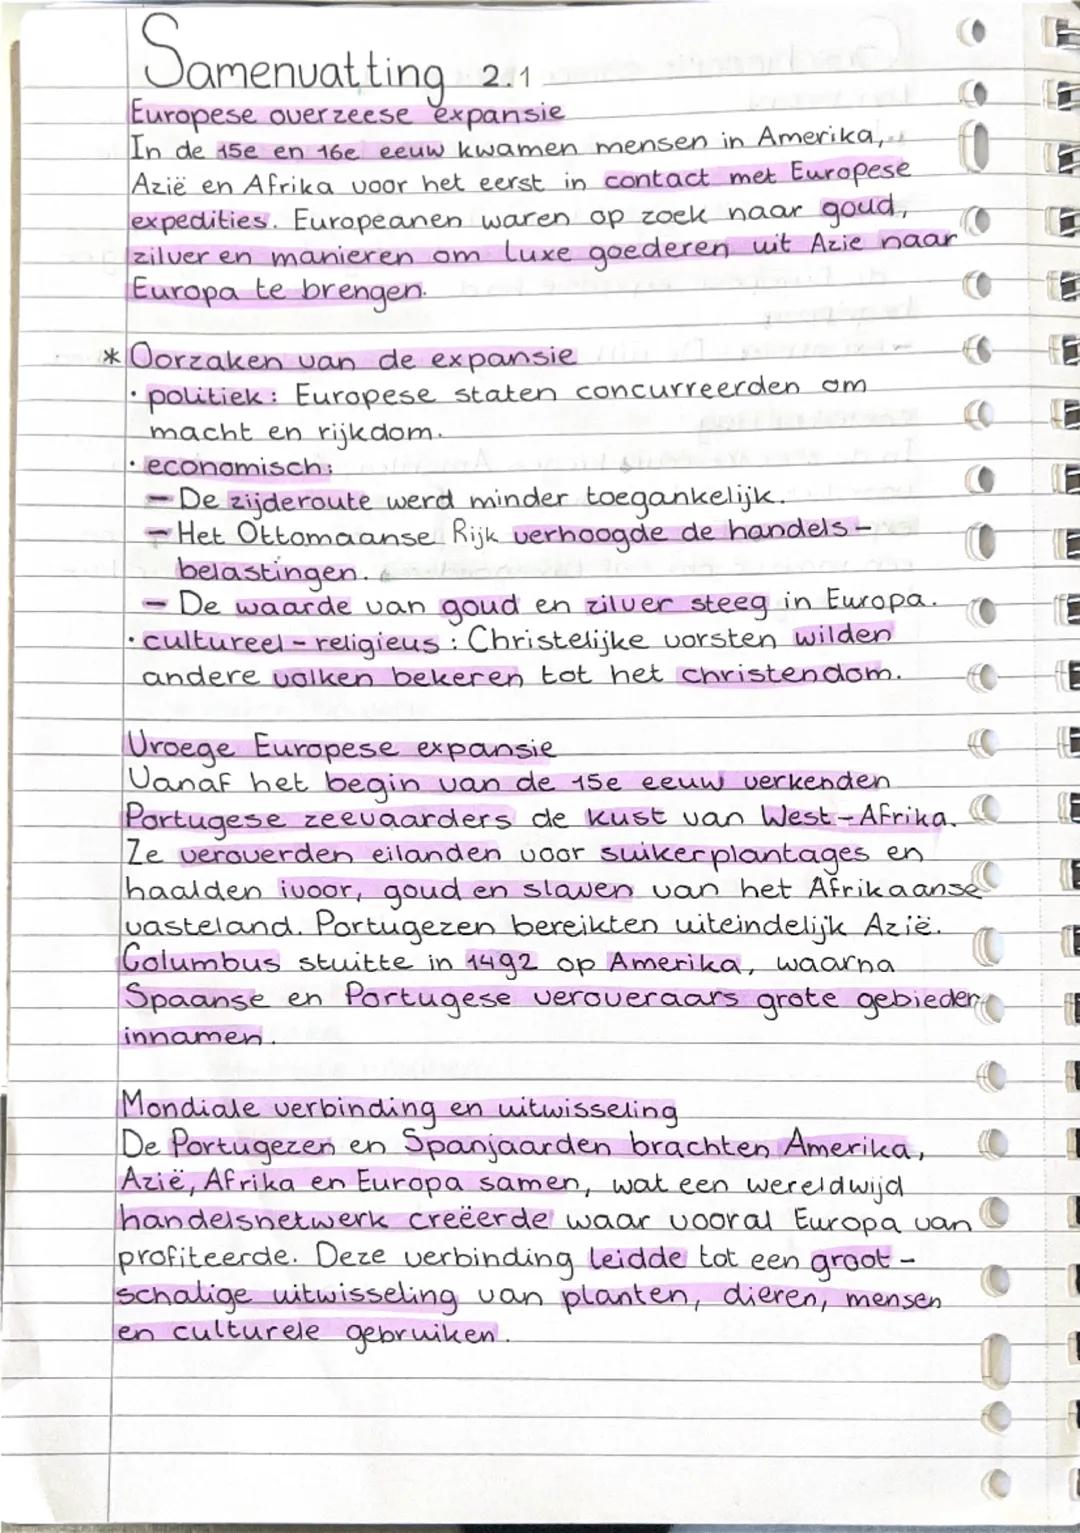 Samenvatting 2.1
Europese overzeese expansie
In de 15e en 16e eeuw kwamen mensen in Amerika,
Azië en Afrika voor het eerst in contact met Europese
expedities. Europeanen waren op zoek naar goud,
zilver en manieren om luxe goederen uit Azie naar
Europa te brengen.
* Oorzaken van de expansie
· politiek: Europese staten concurreerden om
macht en rijkdom.
· economisch:
- De zijderoute werd minder toegankelijk.
- Het Ottomaanse Rijk verhoogde de handels-
belastingen.
- De waarde van goud en zilver steeg in Europa.
· cultureel-religieus: Christelijke vorsten wilden
andere volken bekeren tot het christendom.
Vroege Europese expansie
Vanaf het begin van de 15e eeuw verkenden
Portugese zeevaarders de kust van West-Afrika.
Ze veroverden eilanden voor suikerplantages en
haalden ivoor, goud en slaven van het Afrikaanse
vasteland. Portugezen bereikten uiteindelijk Azië.
Columbus stuitte in 1492 op Amerika, waarna
Spaanse en Portugese veroveraars grote gebieden
innamen.
Mondiale verbinding en uitwisseling
De Portugezen en Spanjaarden brachten Amerika,
Azië, Afrika en Europa samen, wat een wereldwijd
handelsnetwerk creëerde waar vooral Europa van
profiteerde. Deze verbinding leidde tot een groot-
schalige uitwisseling van planten, dieren, mensen
en culturele gebruiken.